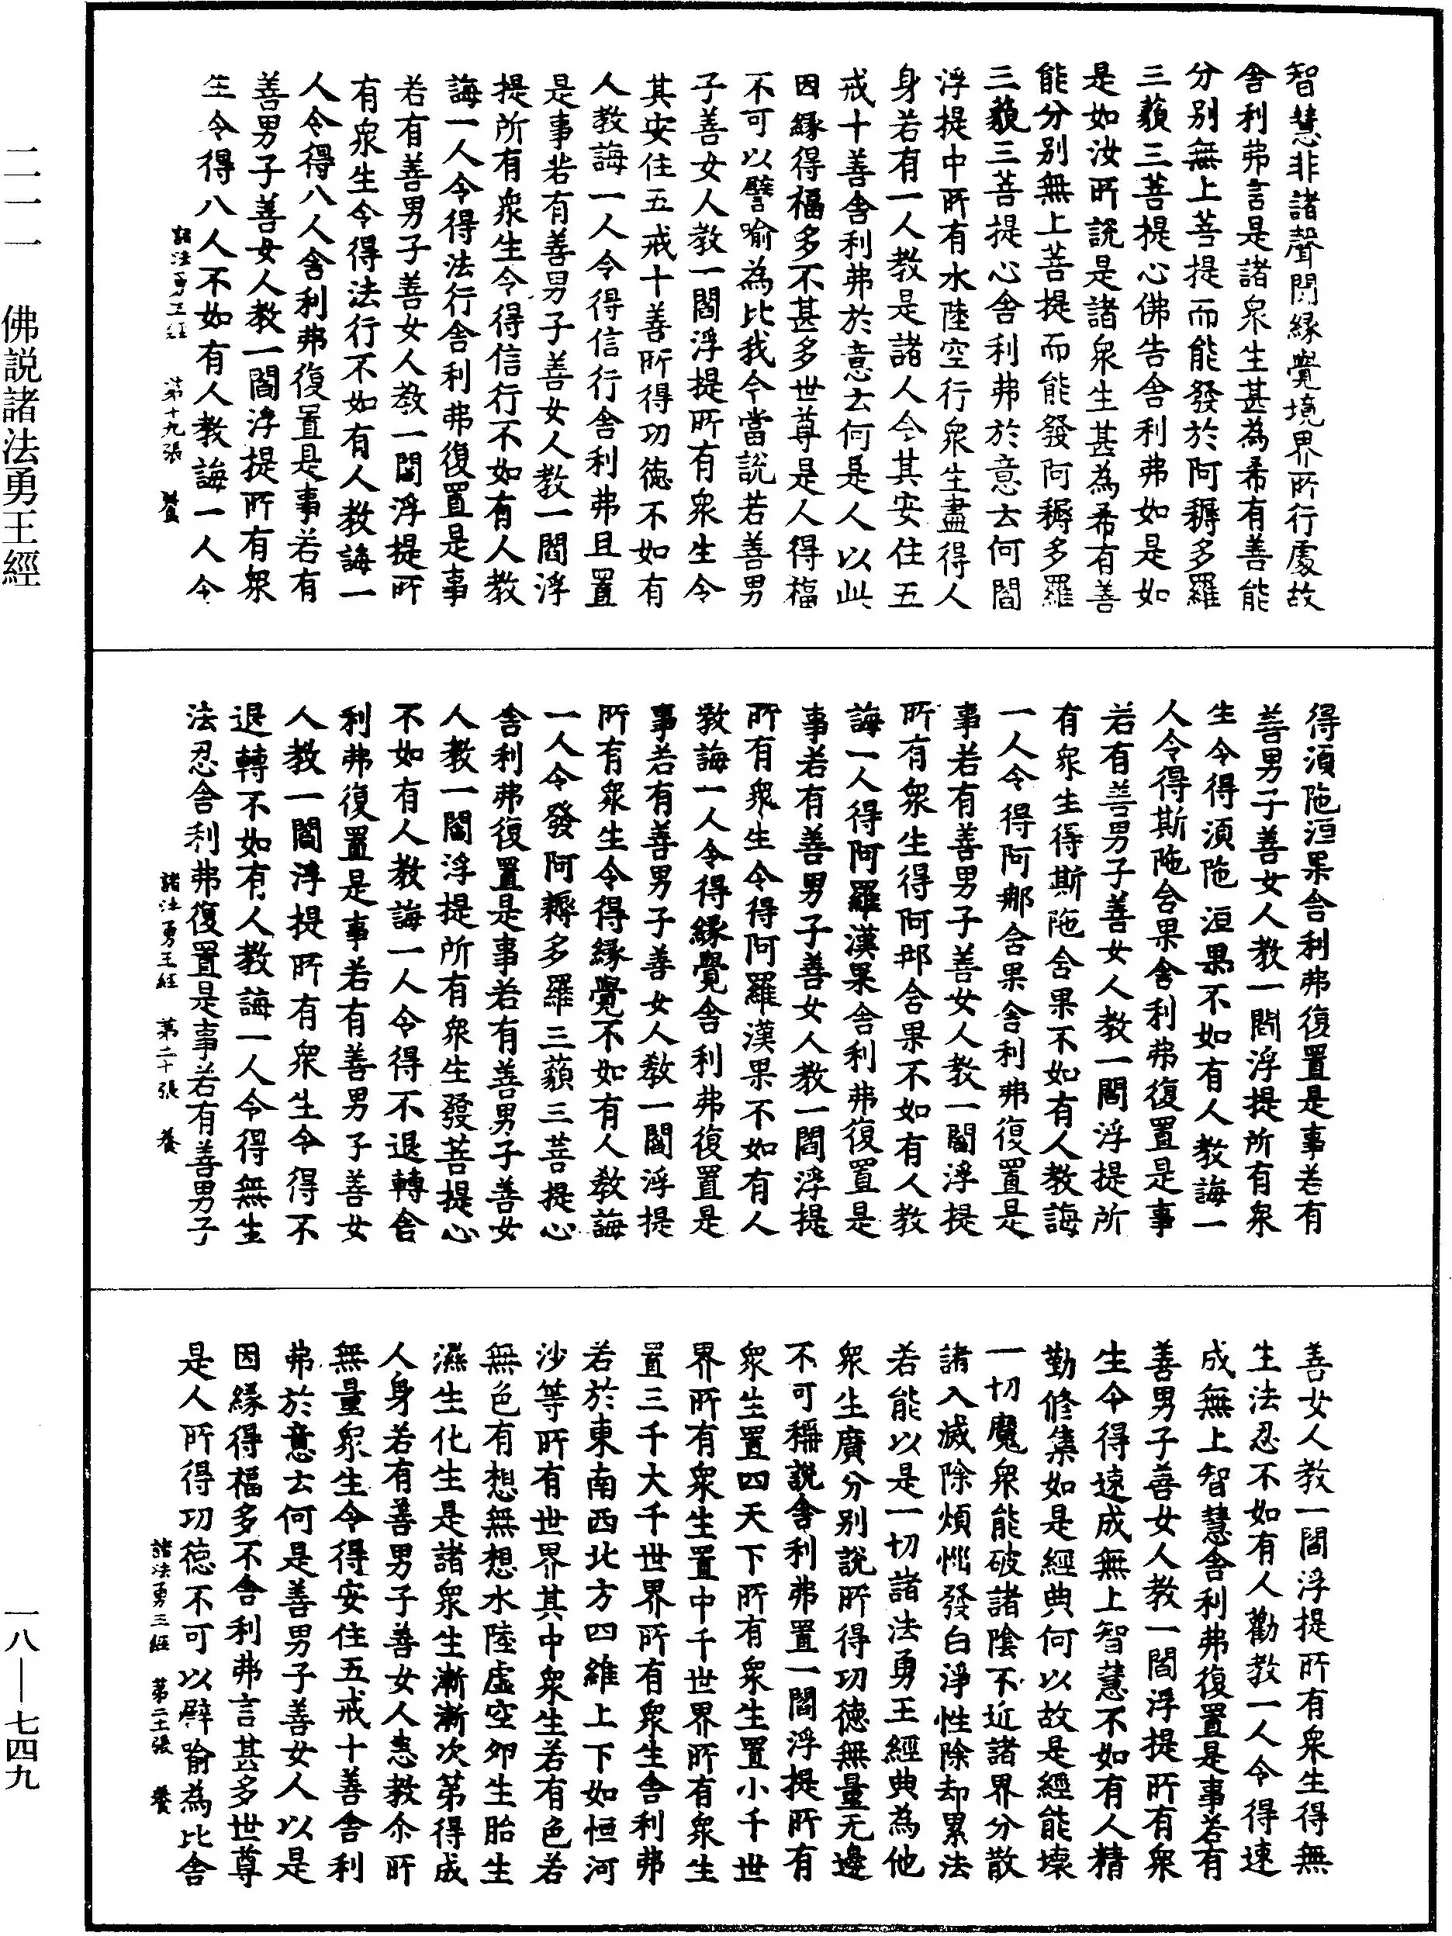 智慧非諸聲聞緣覺境界所行處故
舍利弗言是諸衆生甚為希有善能
分別無上菩提而能發於阿耨多羅
三藐三菩提心佛告舍利弗如是如
是如汝所說是諸衆生甚為希有善
能分別無上菩提而能發阿耨多羅
三藐三菩提心舍利弗於意云何閻
浮提中所有水陸空行衆生盡得人
身若有一人教是諸人令其安住五
戒十善舍利弗於意云何是人以此
因緣得福多不甚多世尊是人得福
不可以譬喻為比我今當說若善男
子善女人教一閻浮提所有衆生令
其安住五戒十善所得功德不如有
人教誨一人令得信行舍利弗且置
是事若有善男子善女人教一閻浮
提所有衆生令得信行不如有人教
誨一人令得法行舍利弗復置是事
若有善男子善女人教一閻浮提所
有衆生令得法行不如有人教誨一
人令得八人舍利弗復置是事若有
善男子善女人教一閻浮提所有衆
生令得八人不如有人教誨一人令
諸法勇王經 第十九張 養
得湏陁洹果舍利弗復置是事若有
善男子善女人教一閻浮提所有衆
生令得湏陁洹果不如有人教誨一
人令得斯陁含果舍利弗復置是事
若有善男子善女人教一閻浮提所
有衆生得斯陁含果不如有人教誨
一人令得阿那含果舍利弗復置是
事若有善男子善女人教一閻浮提
所有衆生得阿那含果不如有人教
誨一人得阿羅漢果舍利弗復置是
事若有善男子善女人教一閻浮提
所有衆生令得阿羅漢果不如有人
教誨一人令得緣覺舍利弗復置是
事若有善男子善女人教一閻浮提
所有衆生令得緣覺不如有人教誨
一人令發阿耨多羅三藐三菩提心
舍利弗復置是事若有善男子善女
人教一閻浮提所有衆生發菩提心
不如有人教誨一人令得不退轉舍
利弗復置是事若有善男子善女
人教一閻浮提所有衆生令得不
退轉不如有人教誨一人令得無生
法忍舍利弗復置是事若有善男子
諸法勇王經 第二十張 養
善女人教一閻浮提所有衆生得無
生法忍不如有人勸教一人令得速
成無上智慧舍利弗復置是事若有
善男子善女人教一閻浮提所有衆
生令得速成無上智慧不如有人精
勤修集如是經典何以故是經能壞
一切魔衆能破諸陰不近諸界分散
諸入滅除煩惱發白淨性除却累法
若能以是一切諸法勇王經典為他
衆生廣分別說所得功德無量无邊
不可稱說舍利弗置一閻浮提所有
衆生置四天下所有衆生置小千世
界所有衆生置中千世界所有衆生
置三千大千世界所有衆生舍利弗
若於東南西北方四維上下如恒河
沙等所有世界其中衆生若有色若
無色有想無想水陸虛空卵生胎生
濕生化生是諸衆生漸漸次第得成
人身若有善男子善女人悉教尒所
無量衆生令得安住五戒十善舍利
弗於意云何是善男子善女人以是
因緣得福多不舍利弗言甚多世尊
是人所得功德不可以譬喻為比舍
諸法勇王經 第二十一張 養
二一一 佛說諸法勇王經
一八—七四九